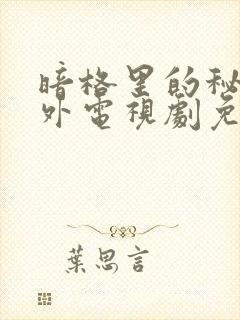 暗格里的秘
外電視劇免
葉思言